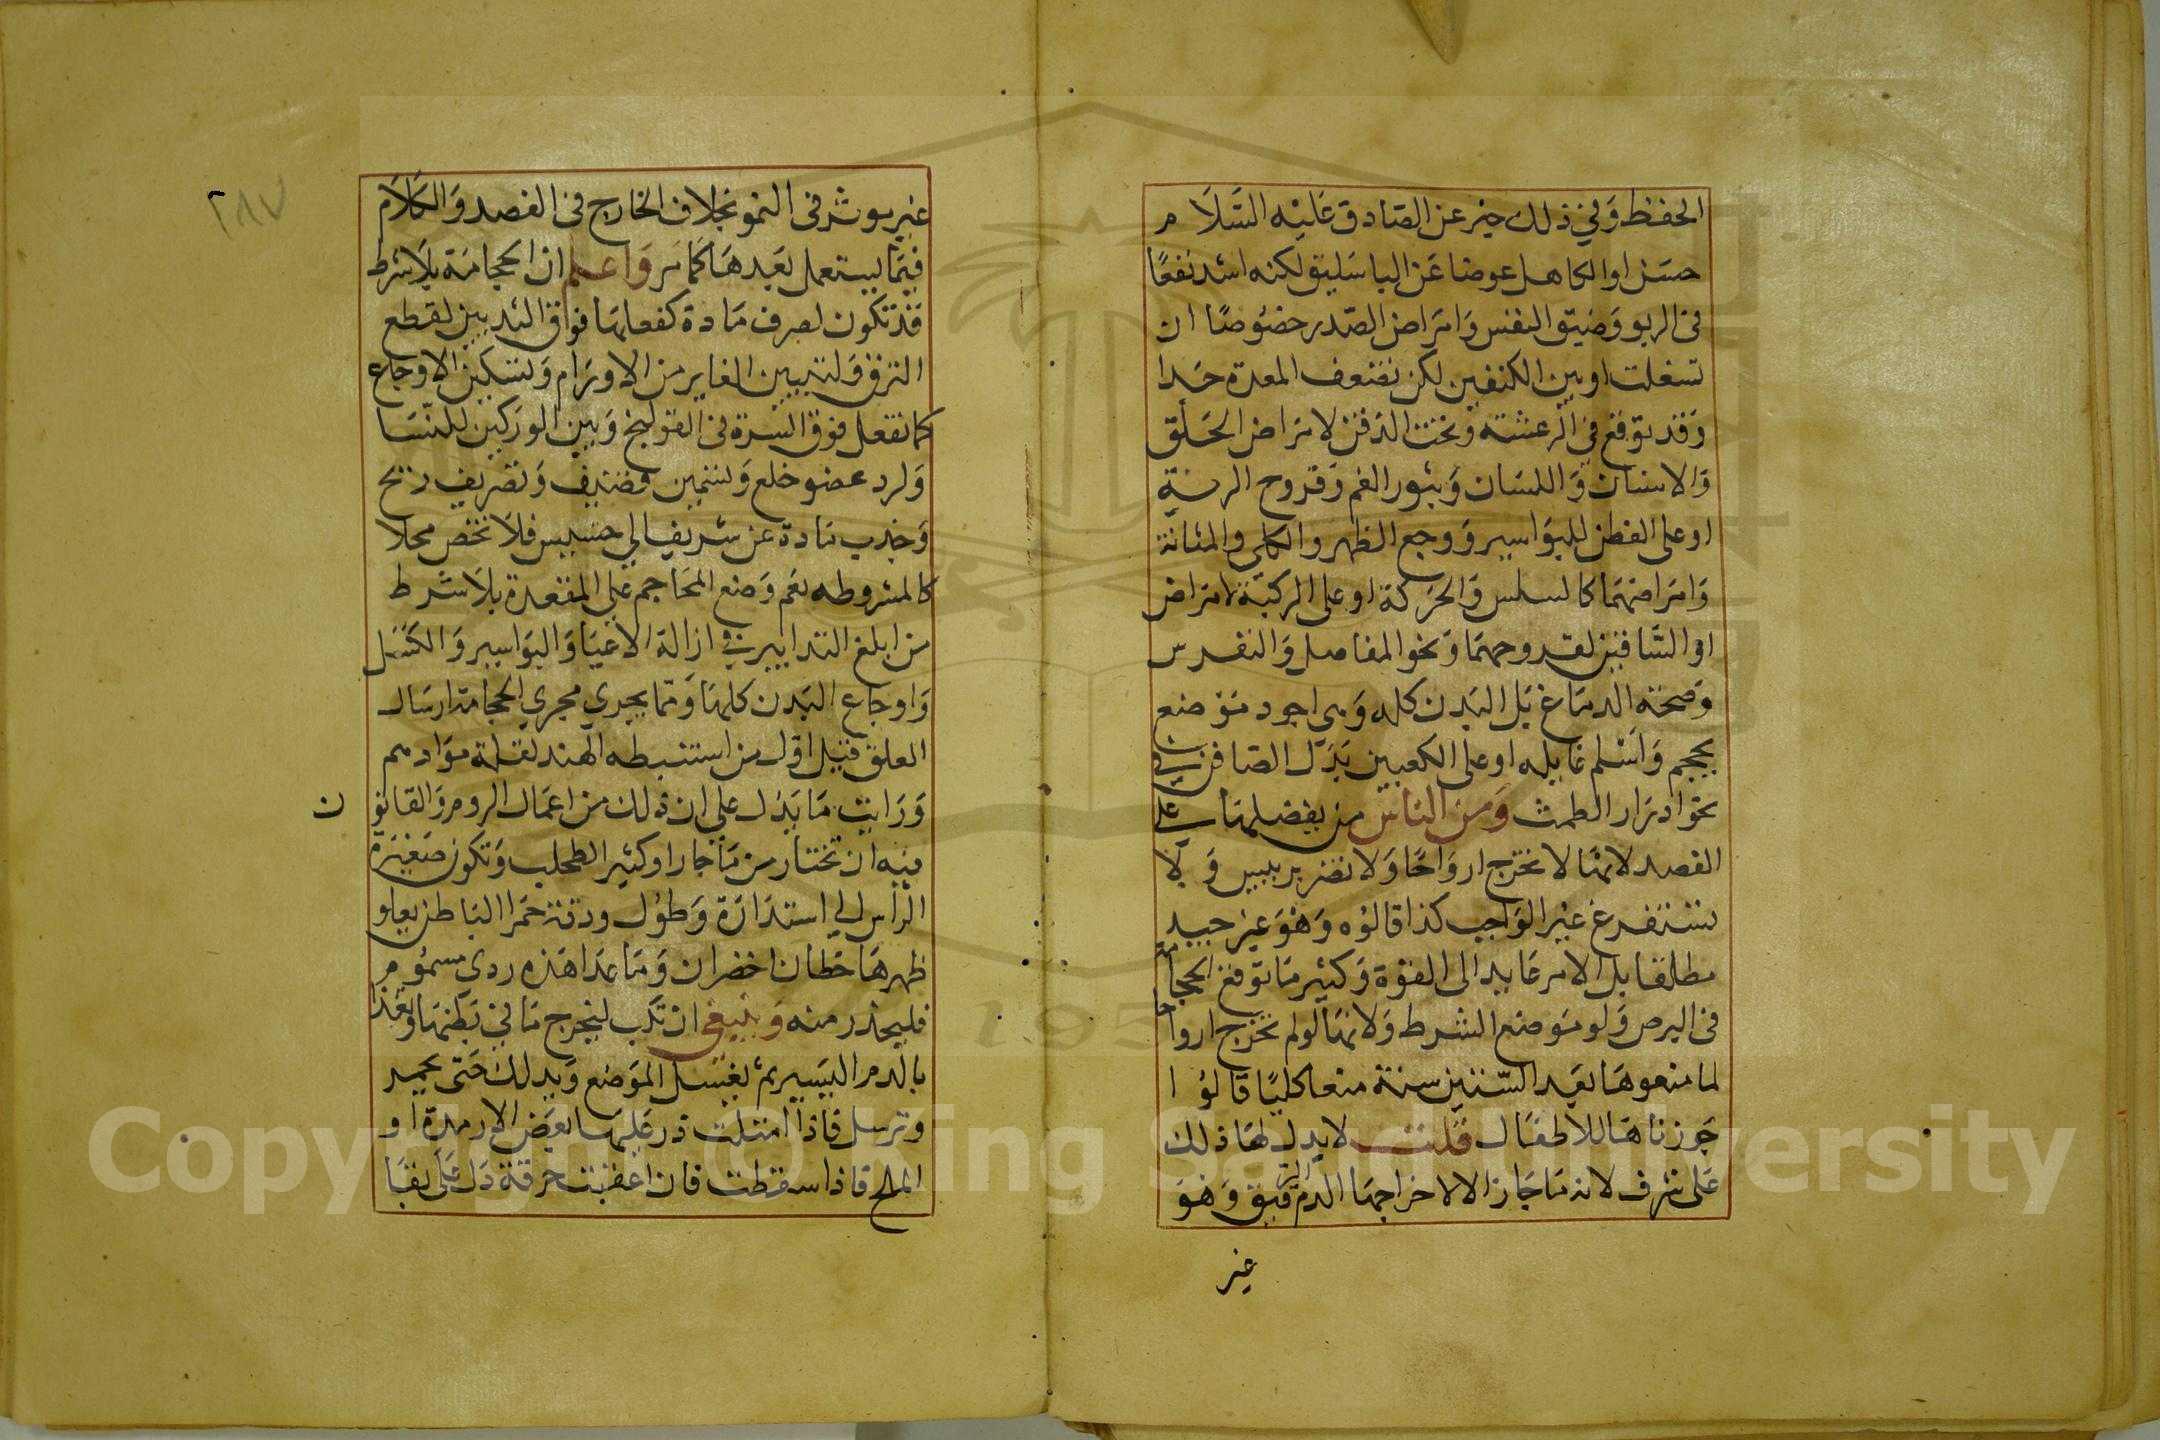 الحفظ وفي ذلك خبر عن الصادق عليه السلام
حسن او الكاهل عوضا عن الباسليق لكنه اشد نفعا
في الربو وضيق النفس وامراض الصدر خصوصا ان
تسفلت او بين الكتفين لكن تضعف المعدة جدا
وقد توقع في الرعشة وتحت الذقن لامراض الحلق
والاسنان واللسان وبثور الفم وقروح الرية
او على القطن للبواسير ووجع الظهر والكلى والمثانة
وامراضهما كالسلس والحركة او على الركبة لامراض
او الساقين لقروحهما ونحو المفاصل والنقرس
وصحة الدماغ بل البدن كله وهي اجود موضع
يحجم واسلم غايله او على الكعبين بدل الصافن في
نحو ادرار الطمث ومن الناس من يفضلها على
الفصد لانها لا تخرج ارواحا ولا تضر برييس ولا
تستفرغ غير الواجب كذا قالوه وهو غير جيد
مطلقا بل الامر عايد الى القوة وكثير ما توقع الحجامة
في البرص ولو موضع الشرط ولانها لو لم تخرج ارواحا
لما منعوها بعد الستين سنة منعا كليا قالوا
جوزناها للاطفال قلت لا يدل لها ذلك
على شرف لانه ما جاز الا لاخراجها الدم الرقيق وهو
غير
٢٨٧
غير يوثر في النمو بخلاف الخارج في الفصد والكلام
فيما يستعمل بعدها كما مر واعلم ان الحجامة بلا شرط
قد تكون لصرف مادة كفعلها فوق الثديين لقطع
النزف ولتبيين الغاير من الاورام ولتسكين الاوجاع
كما تفعل فوق السرة في القولنج وبين الوركين للنسا
ولرد عضو خلع ولتسمين قضيف وتصريف ريح
وجذب مادة عن شريف الي خسيس فلا تخص محلا
كالمشروطه نعم وضع المحاجم على المقعدة بلا شرط
من ابلغ التدابير في ازالة الاعيا والبواسير والكسل
واوجاع البدن كلها ومما يجري مجري الحجامة ارسال
العلق قيل اول من استنبطه الهند لقلة موادهم
ورايت ما يدل علي ان ذلك من اعمال الروم والقانو
ن
فيه ان تختار من ما جار او كثير الطحلب وتكون صغيرة
الراس الي استدارة وطول ودقة حمرا الباطن يعلو
ظهرها خطان اخضران وما عدا هذه ردي مسموم
فليحذر منه وينبغي ان تكب ليخرج ما في بطنها وتغذا
بالدم اليسير ثم يغسل الموضع ويدلك حتى يحمر
وترسل فاذا امتلت ذر عليها بعض الارمدة او
الملح فاذا سقطت فان اعقبت حرقة دل على بقا